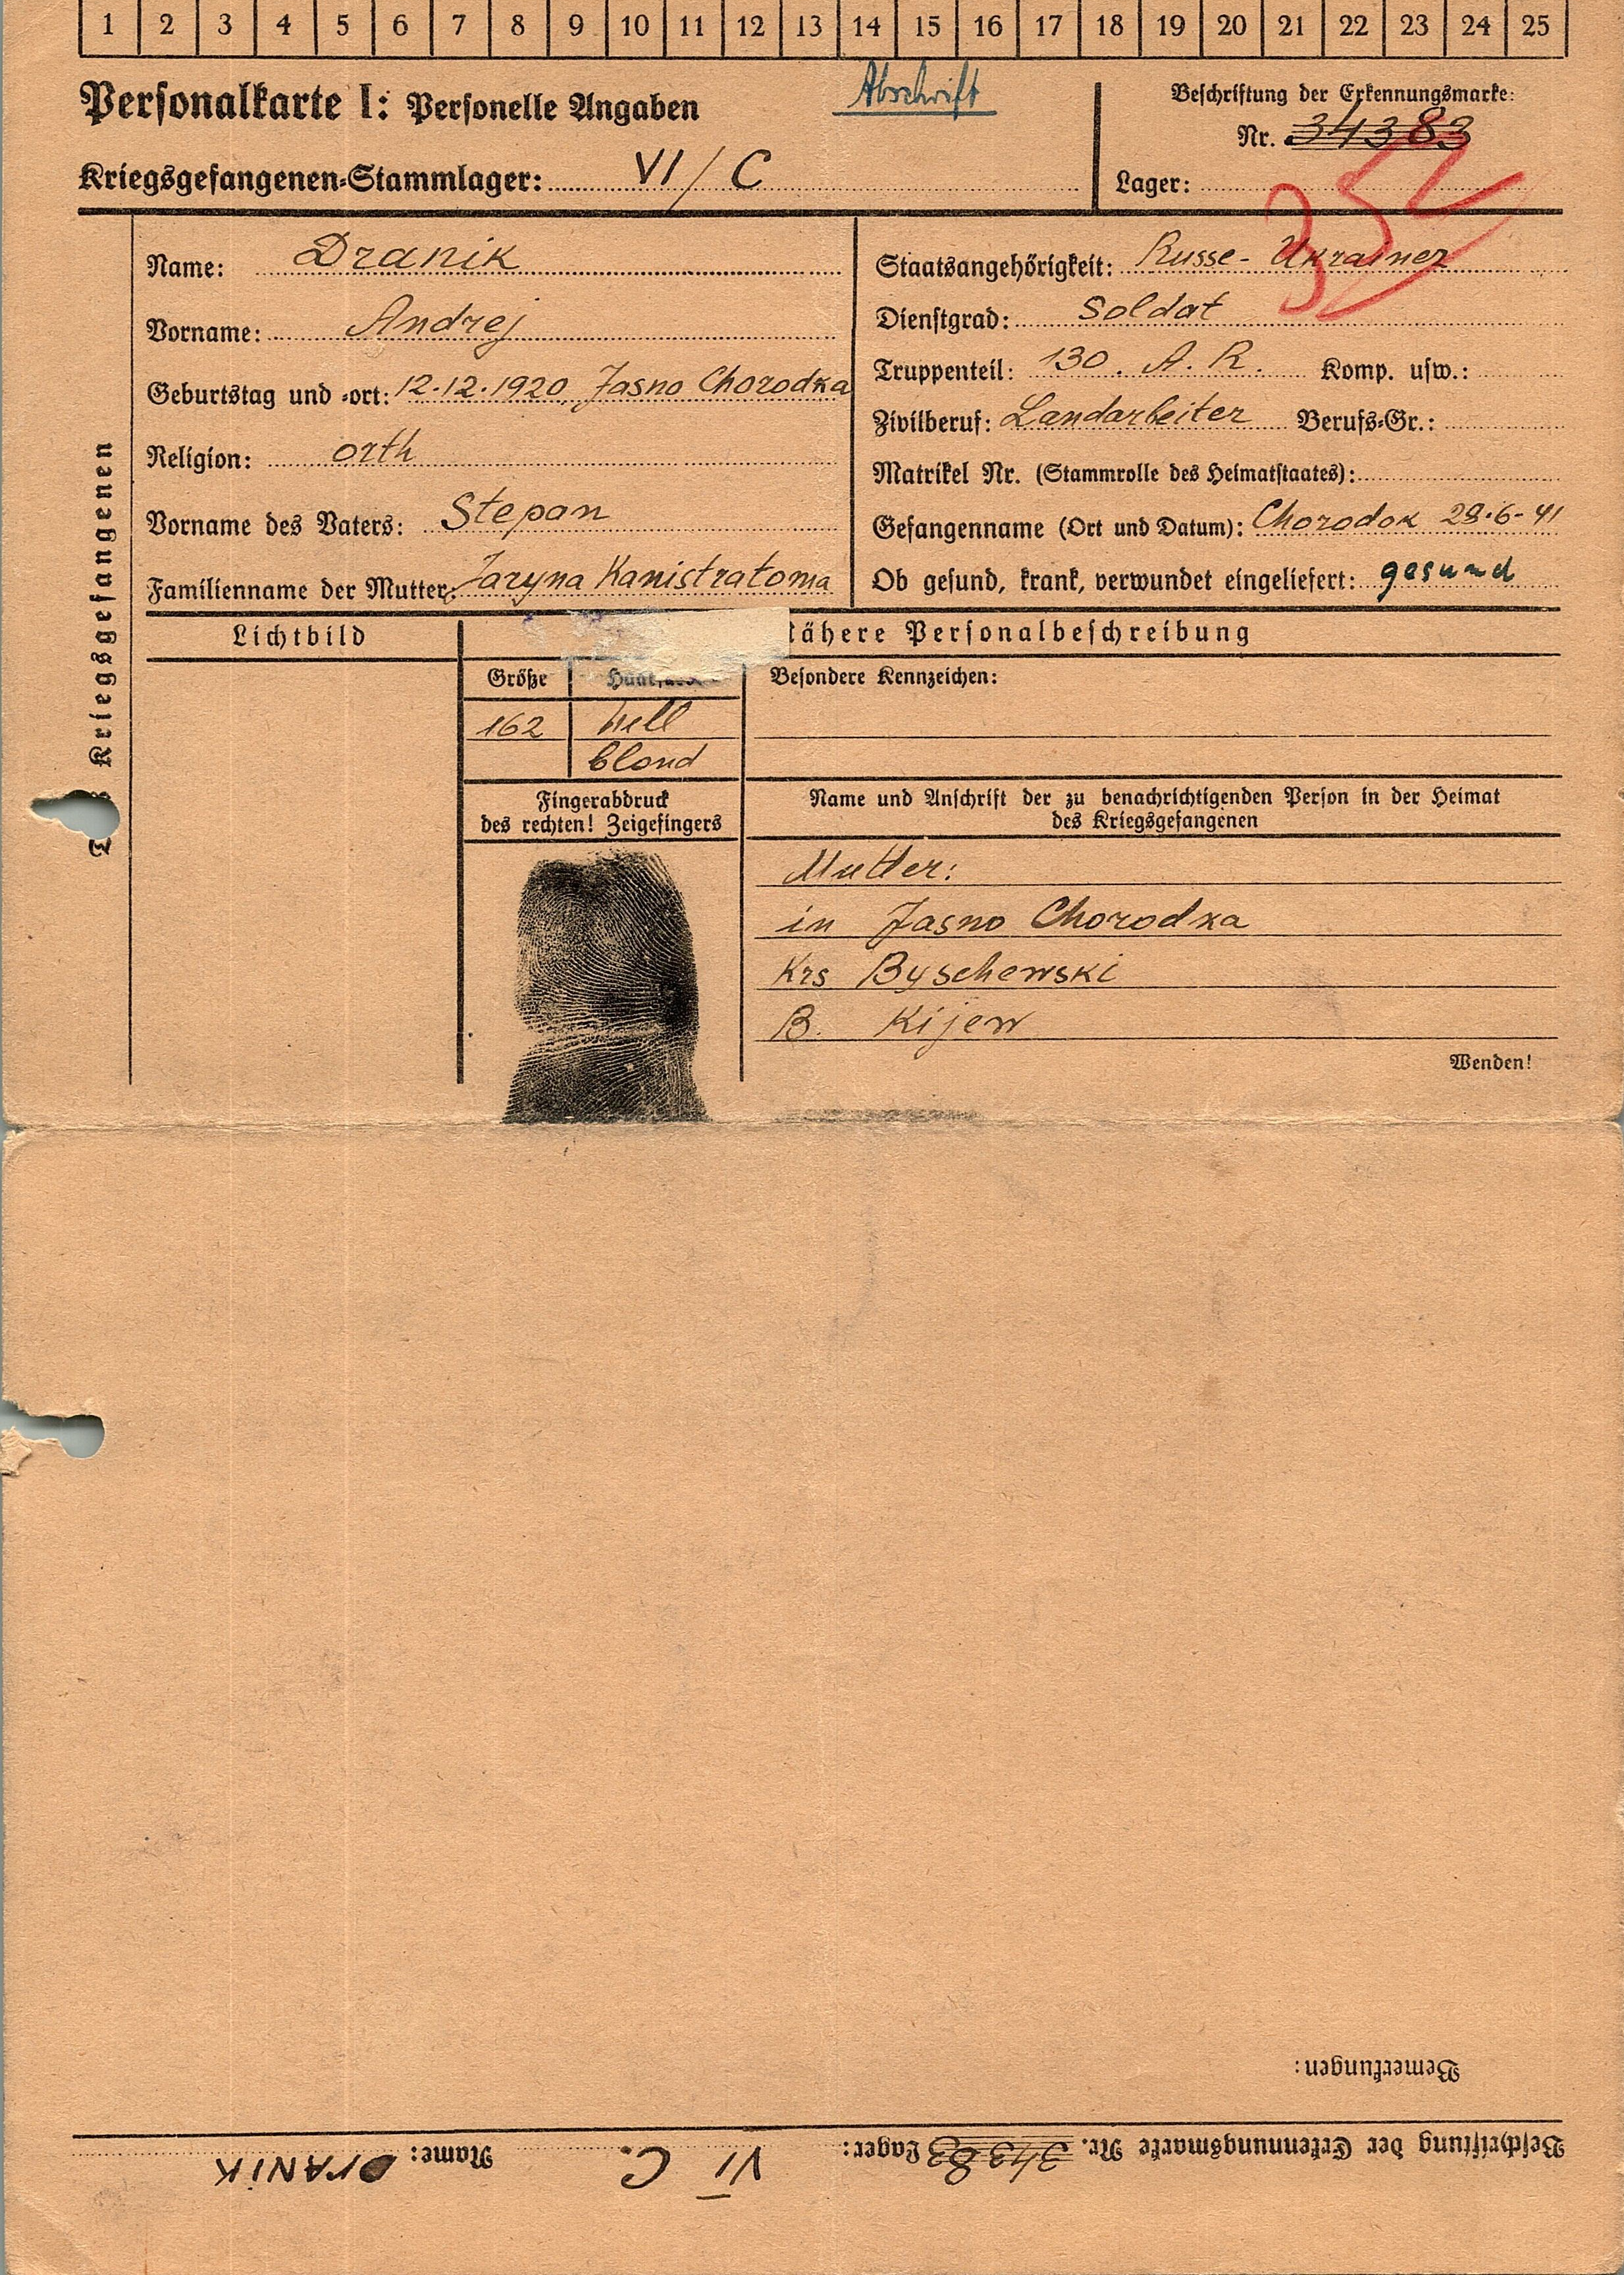 1 2 3 4 5 6 7 8 9 10 11 12 13 14 15 16 17 18 19 20 21 22 23 24 25
Personalkarte I: Personelle Angaben
Abschrift
Kriegsgefangenen-Stammlager: VI/C
Beschriftung der Erkennungsmarke:
Nr. 34383
Lager:
352
Des Kriegsgefangenen
Name: Dranik
Vorname: Andrej
Geburtstag und -ort: 12.12.1920, Jasno Chorodka
Religion: orth
Vorname des Vaters: Stepan
Familienname der Mutter: Jaryna Kanistratoma
Staatsangehörigkeit: Russe-Ukrainer
Dienstgrad: Soldat
Truppenteil: 130. A. R. Komp. usw.:
Zivilberuf: Landarbeiter Berufs-Gr.:
Matrikel Nr. (Stammrolle des Heimatstaates):
Gefangenname (Ort und Datum): Chorodok 29.6-41
Ob gesund, krank, verwundet eingeliefert: gesund
Lichtbild
Nähere Personalbeschreibung
Größe Haarfarbe
162 hell
blond
Besondere Kennzeichen:
Fingerabdruck
des rechten! Zeigefingers
Name und Anschrift der zu benachrichtigenden Person in der Heimat
des Kriegsgefangenen
Mutter:
in Jasno Chorodka
Krs Byschewski
B. Kijew
Wenden!
Bemerkungen:
Beschriftung der Erkennungsmarke Nr. 34383 Lager: VI C. Name: DRANIK